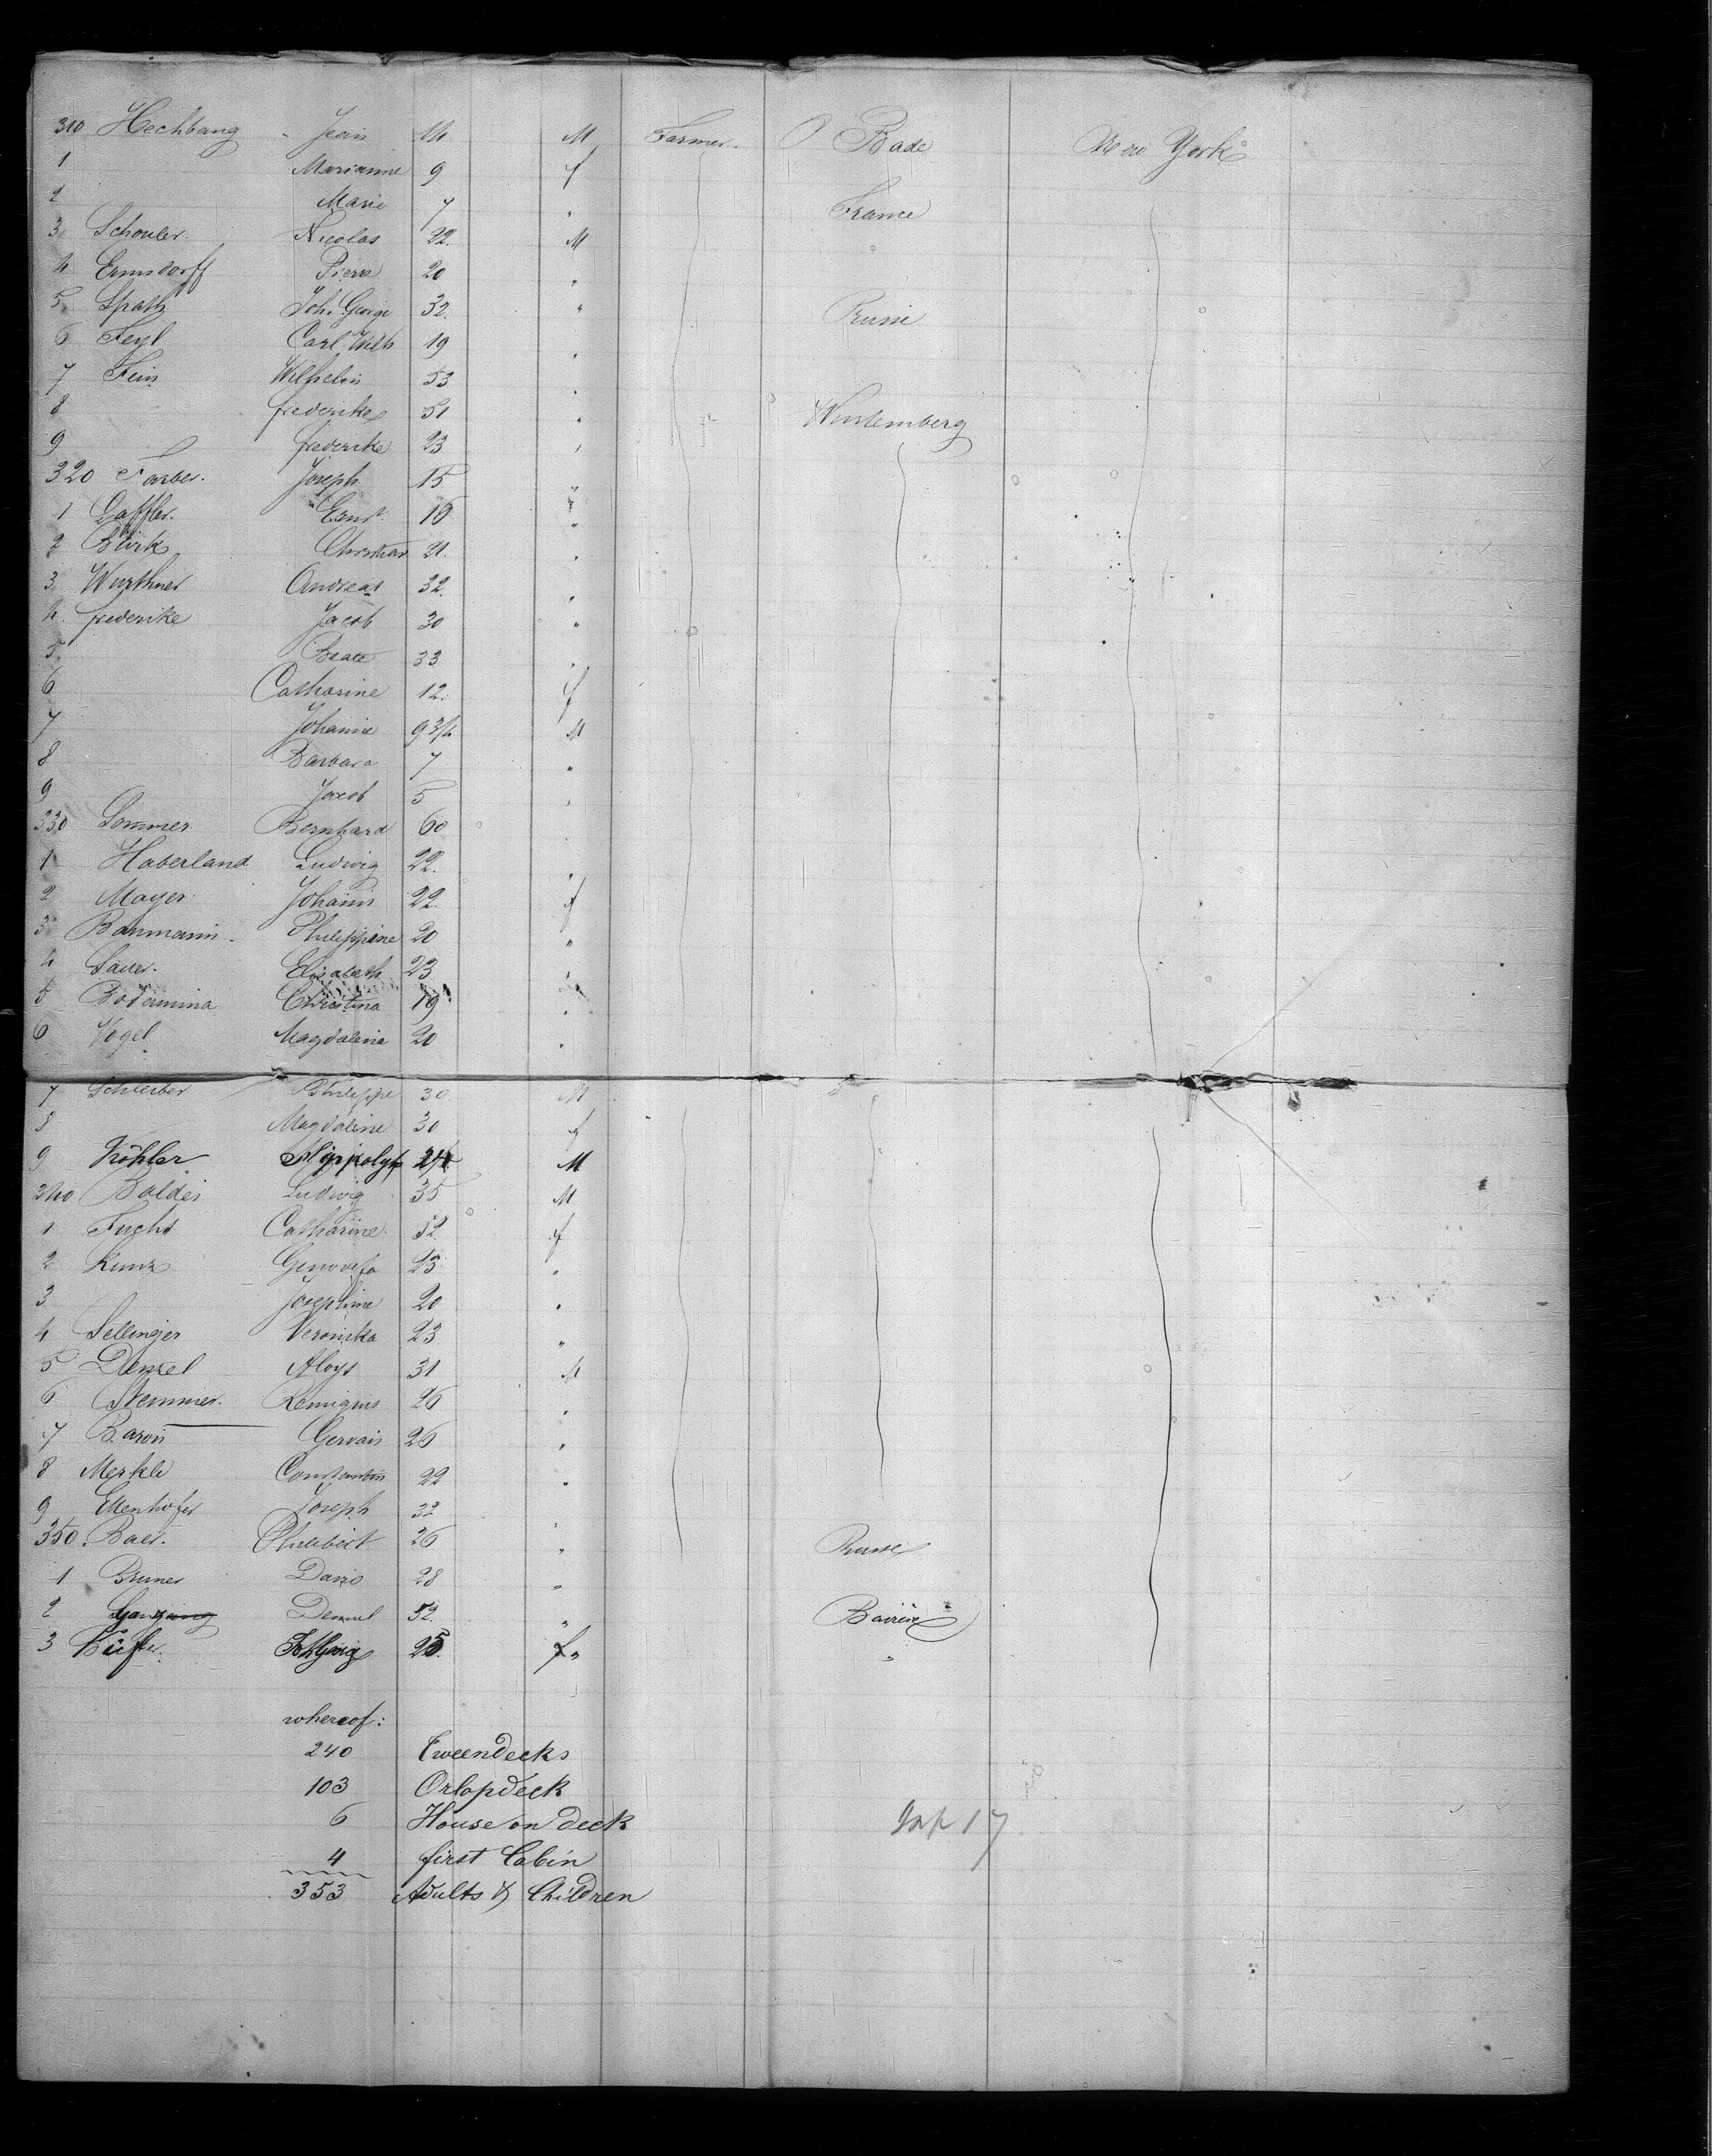 310 Hechbang - Jean 14 M Farmer. Bade New York
1 Marianne 9 f
2 Marie 7 " France
3 Schouler. Nicolas 22. M
4 Ermsdorff Pierre 20 "
5 Spath Joh. George 32. " Prusse
6 Feyl Carl Wilh 19 "
7 Fein Wilhelm 53 "
8 frederike 51 " Wurtemberg
9 frederike 23 "
320 Farber. Joseph 15 "
1 Gaffler. Ernst 16 "
2 Bürk Christian 21. "
3 Wurthner Andreas 32. "
4. frederike Jacob 30 "
5. Beate 33 "
6 Catharine 12. f
7 Johanne 9 3/4 M
8 Barbara 7 "
9 Jacob 5 "
330 Sommer Bernhard 60
1 Haberland Ludwig 22. "
2 Mayer Johann 22. f
3 Baumann. Philippine 20 "
4 Sauer. Elisabeth 23 "
5 Bodamina Christina 19 "
6 Vogel Magdalena 20 "
7 Schreiber Philippe 30 M
8 Magdaline 30 f
9 Köhler Hyppolyt 24 M
340 Baldes Ludwig 35 M
1 Fuchs Catharine 52. f
2 Kunz Genovefa 23 "
3 Josephine 20 "
4 Sellinger Veronicka 23 "
5 Denzel Aloys 31 M
6 Stemmer. Remigius 26 "
7 Baron Gervais 26 "
8 Merkle Constantin 22 "
9 Ellenhofer Joseph 32 "
350. Baer. Philibert 26 " Prusse
1 Bruner David 28 "
2 52. " Bavière
3 25. f "
whereof:
240 Tweendecks
103 Orlopdeck
6 House on deck
4 first Cabin
353 Adults & Children
17